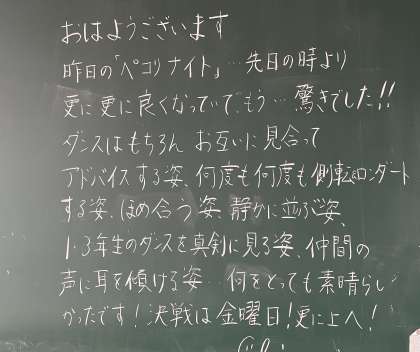 おはようございます
昨日の「ペコリナイト」…先日の時より
更に更に良くなっていて、もう…驚きでした!!
ダンスはもちろん お互いに見合って
アドバイスする姿、何度も何度も側転ロンダート
する姿、ほめ合う姿、静かに並ぶ姿、
1・3年生のダンスを真剣に見る姿、仲間の
声に耳を傾ける姿…何をとっても素晴らし
かったです!決戦は金曜日!更に上へ!